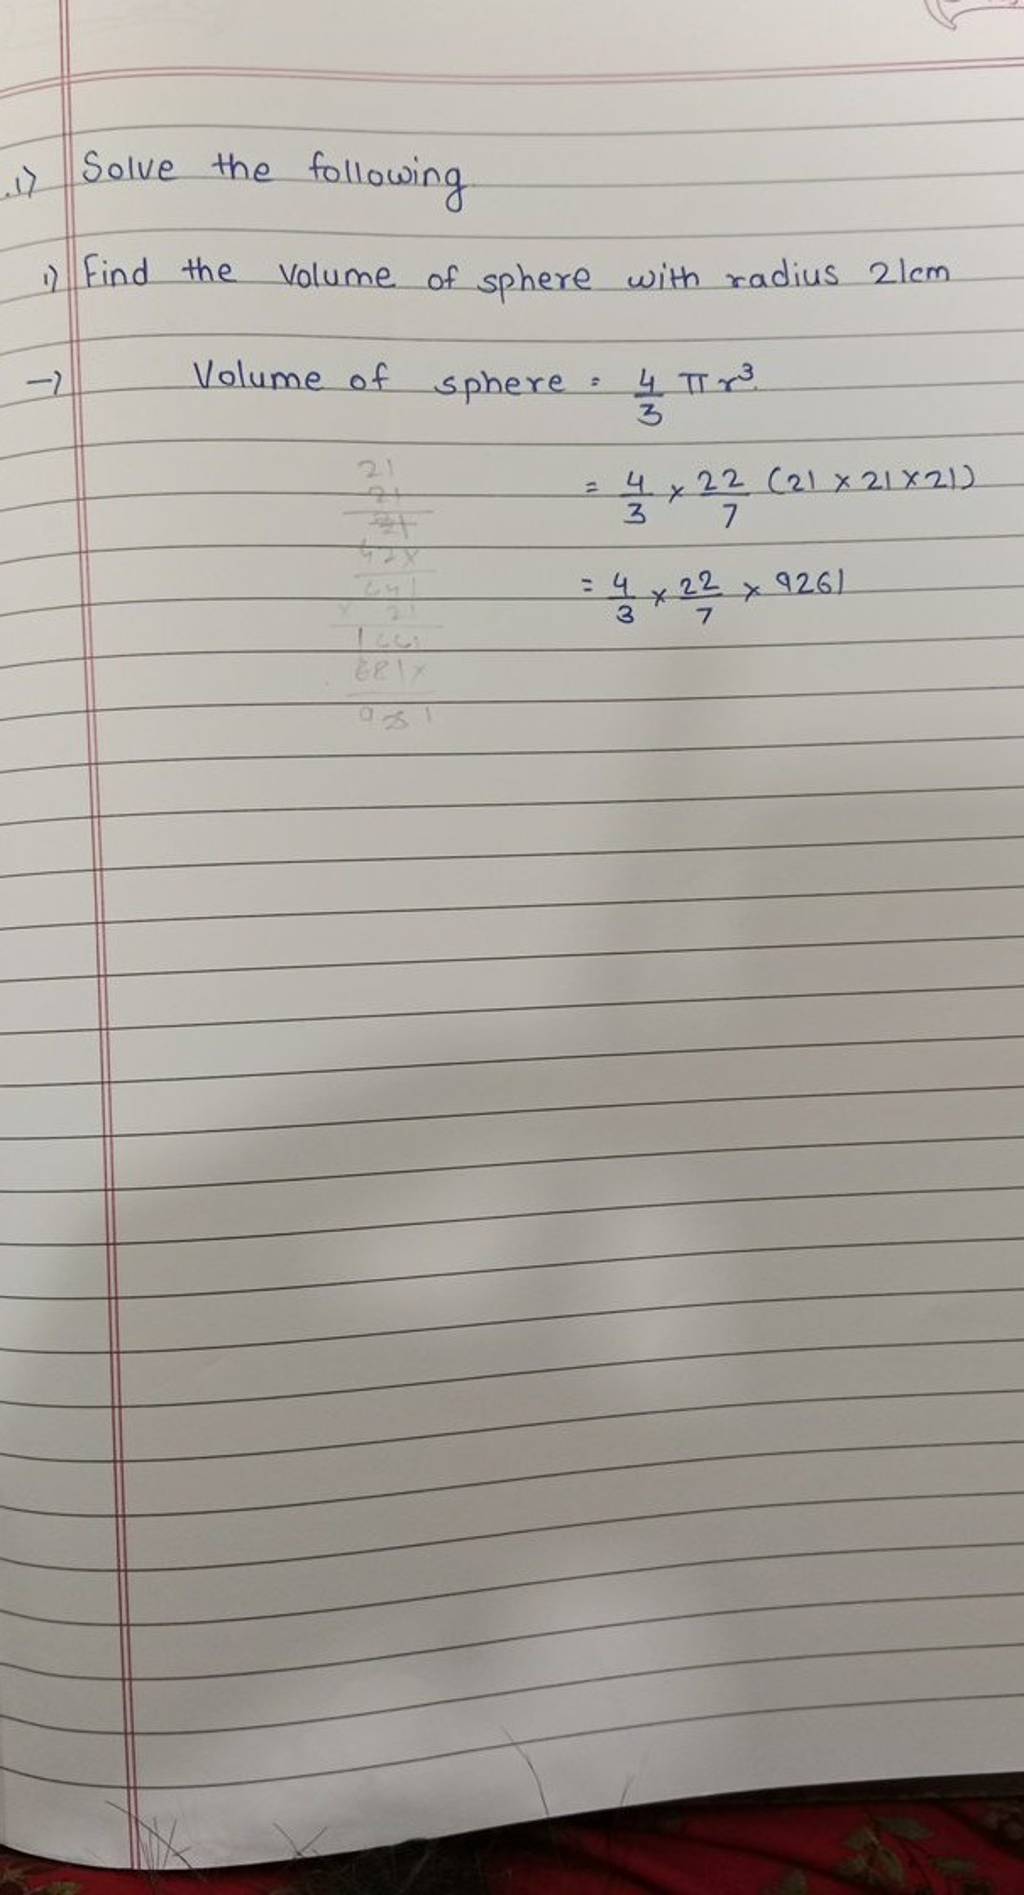 .1) Solve the following
1) Find the volume of sphere with radius 21cm
→ Volume of sphere = 4/3 πr³.
= 4/3 × 22/7 (21 × 21 × 21)
= 4/3 × 22/7 × 9261
21
21
21
42x
441
× 21